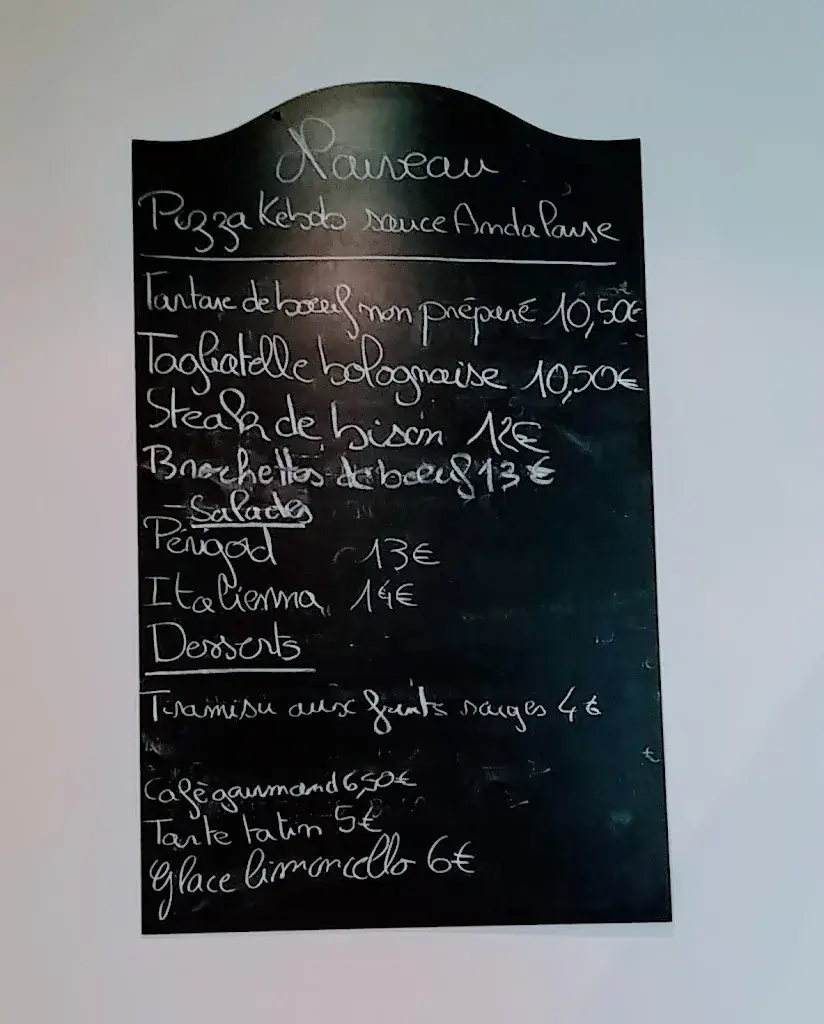 Nouveau
Pizza Kebab sauce Andalouse
Tartare de boeuf non préparé 10,50€
Tagliatelle bolognaise 10,50€
Steak de bison 12€
Brochettes de boeuf 13€
Salades
Périgord 13€
Italienna 14€
Desserts
Tiramisu aux fruits rouges 4€
€
Café gourmand 6,50€
Tarte tatin 5€
Glace limoncello 6€